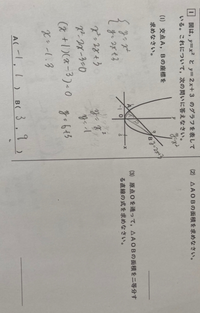 1 図は、y=x² と y=2x+3 のグラフを表して
いる。これについて、次の問いに答えなさい。
(1) 交点A、Bの座標を
求めなさい。
y=x²
y=2x+3
x²=2x+3
x²-2x-3=0
(x+1)(x-3)=0
x=-1, 3
y=1
y=6+3
A(-1, 1) B(3, 9)
(2) △AOBの面積を求めなさい。
(3) 原点Oを通って、△AOBの面積を二等分す
る直線の式を求めなさい。